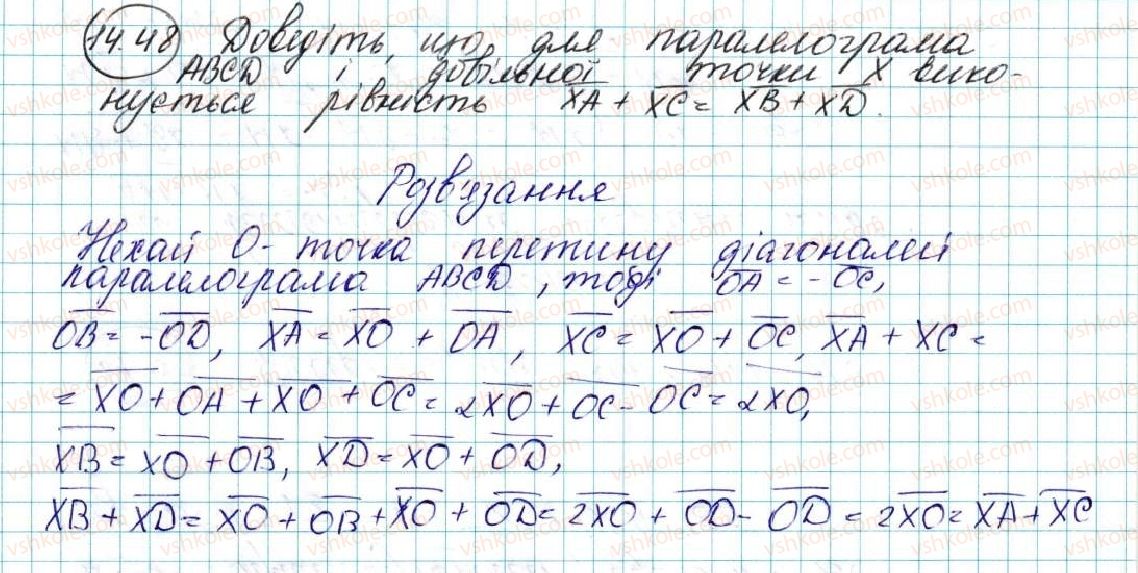 14.48 Доведіть, що для паралелограма
ABCD і довільної точки X вико-
нується рівність XA + XC = XB + XD.
Розв'язання
Нехай O - точка перетину діагоналей
паралелограма ABCD, тоді OA = - OC,
OB = -OD, XA = XO + OA, XC = XO + OC, XA + XC =
= XO + OA + XO + OC = 2XO + OC - OC = 2XO,
XB = XO + OB, XD = XO + OD,
XB + XD = XO + OB + XO + OD = 2XO + OD - OD = 2XO = XA + XC